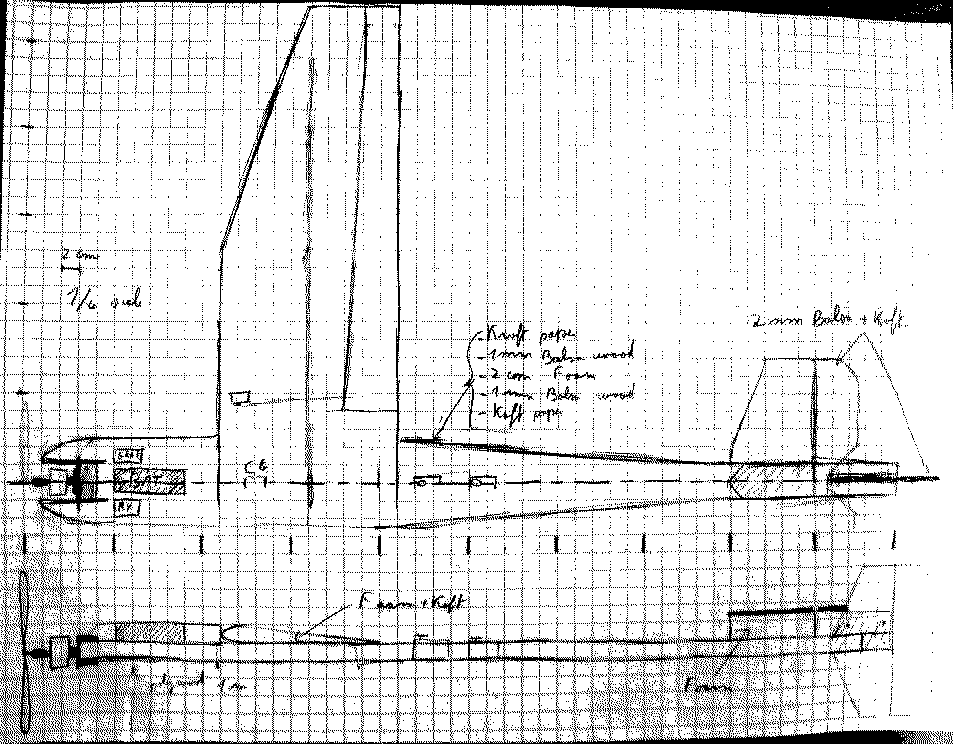 2 cm
1/6 scale
- Kraft pape
- 1mm Balsa wood
- 2 cm Foam
- 1mm Balsa wood
- Kraft pape
2 mm Balsa + Kraft
CG
RX
Foam + Kraft
Foam